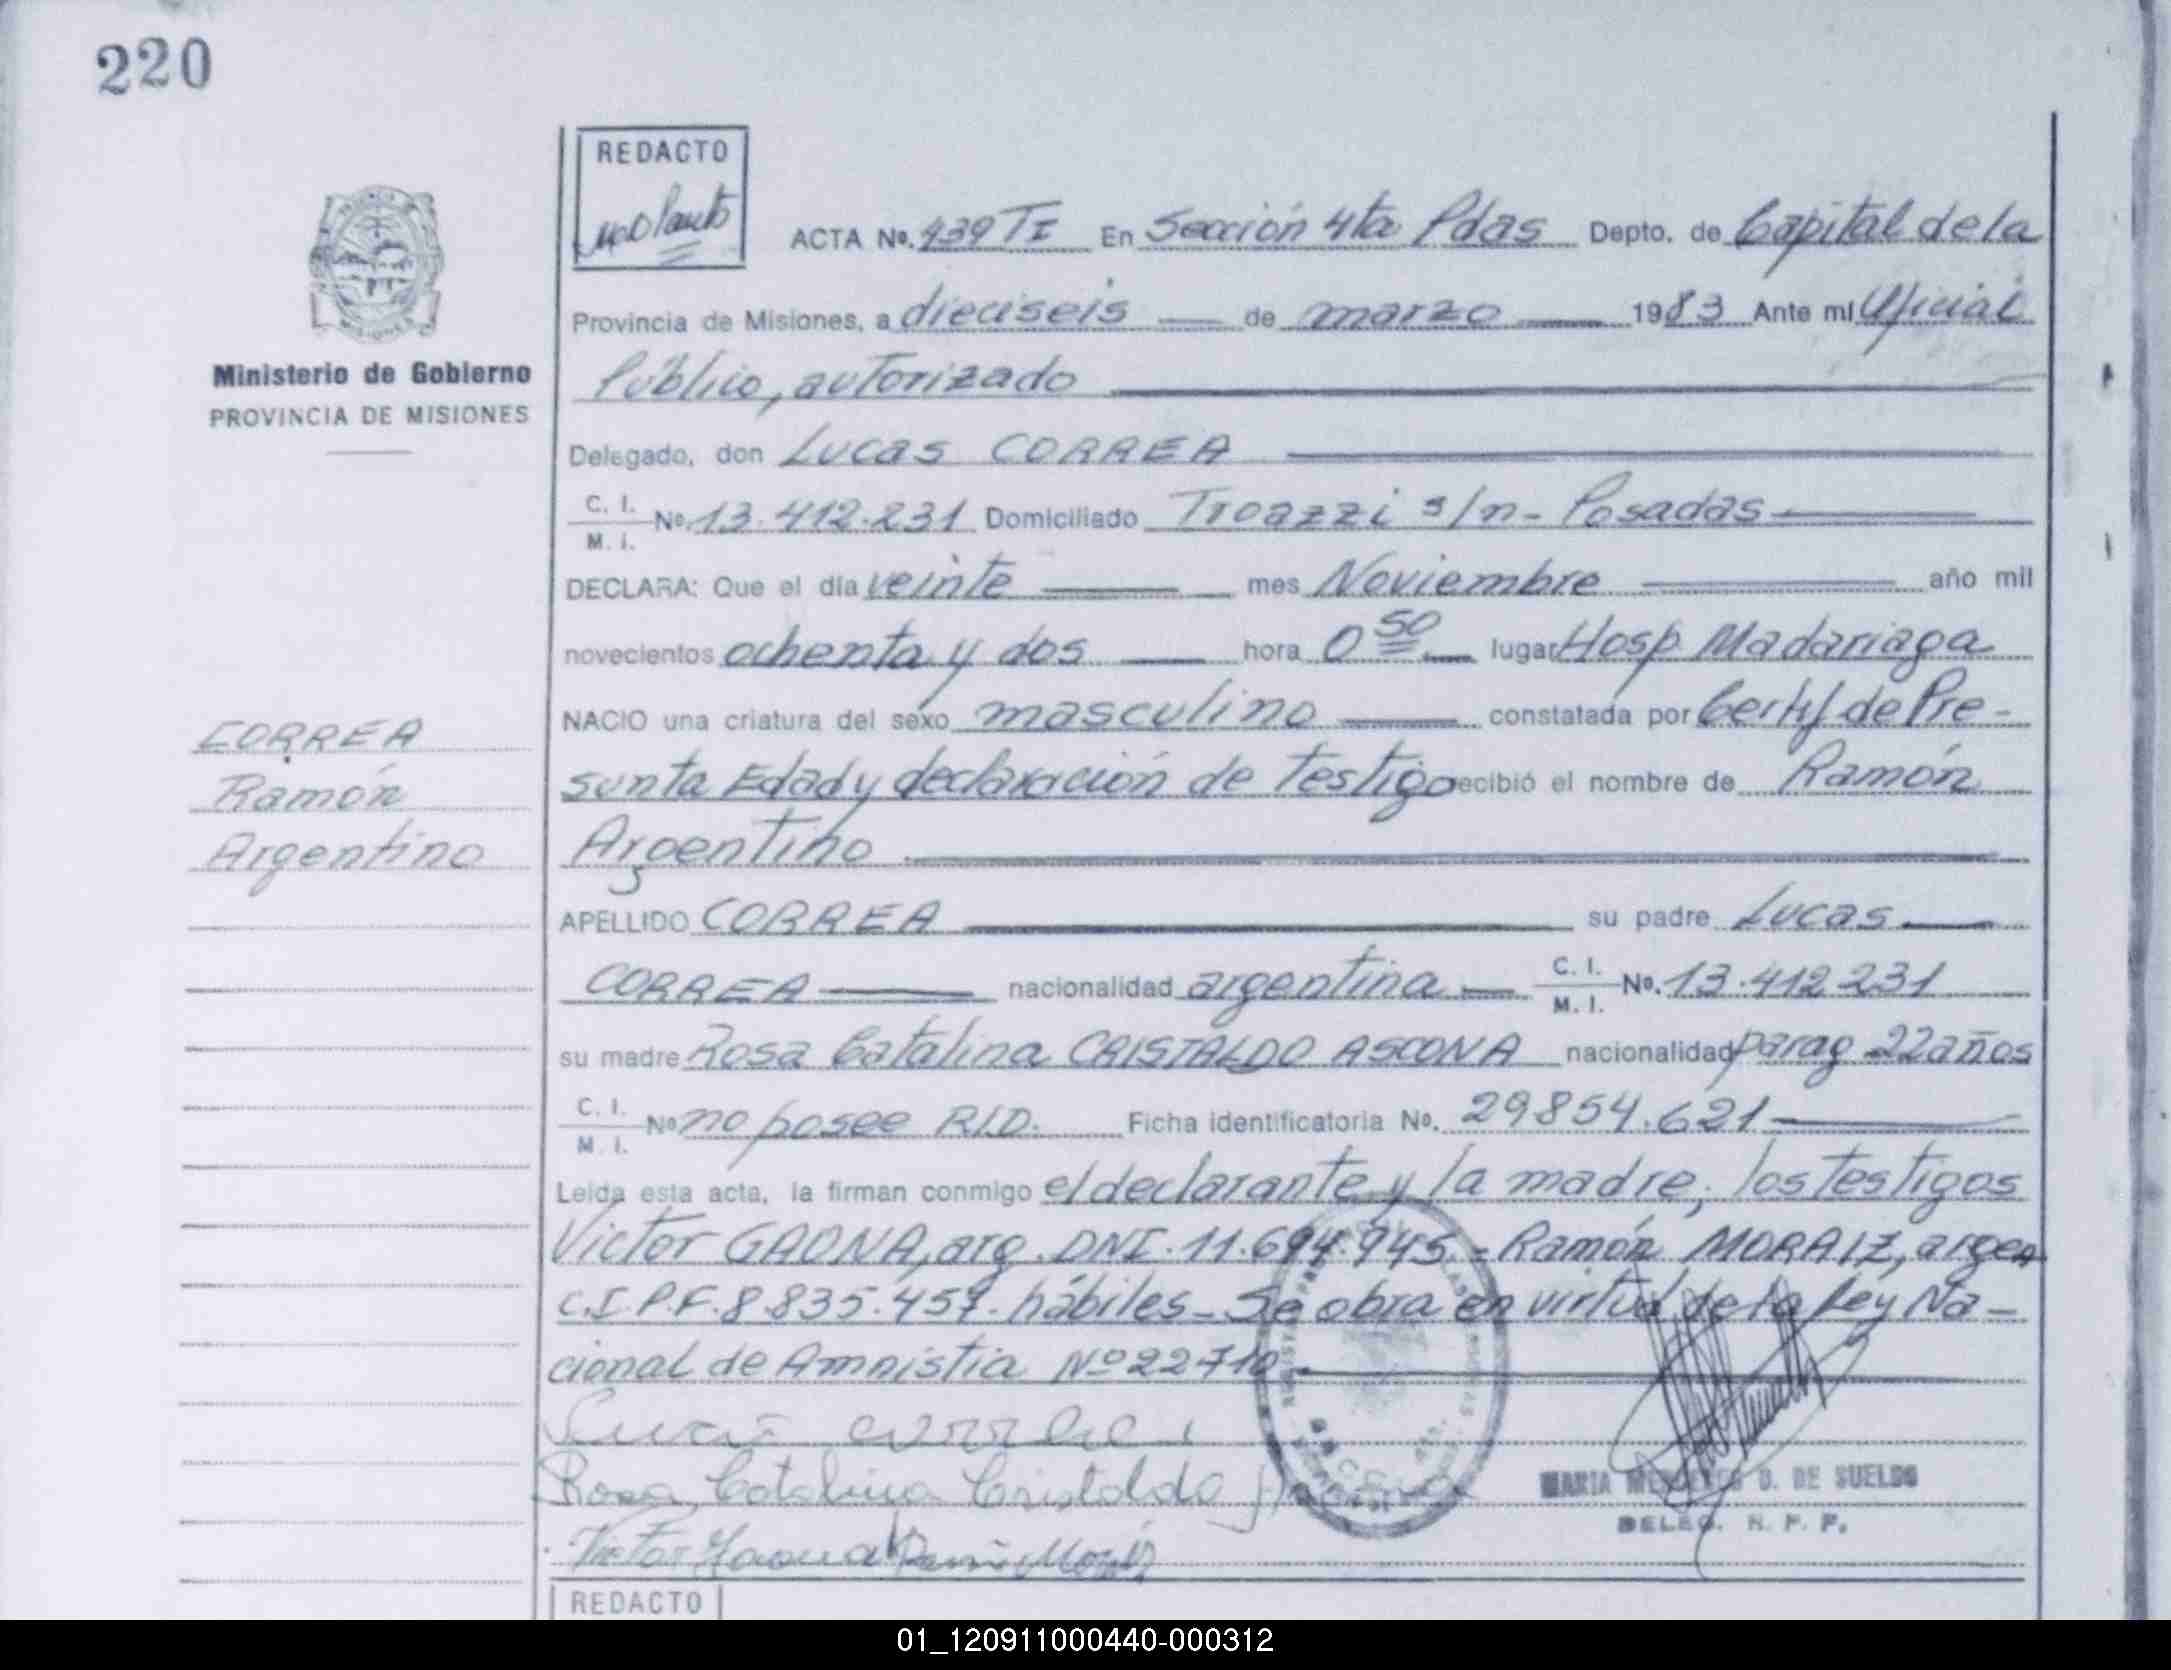 220
REDACTO
ACTA Nº. 439 TI En Sección 4ta Pdas Depto. de Capital de la
Provincia de Misiones, a dieciseis de marzo 1983 Ante mí Oficial
Público, autorizado
Ministerio de Gobierno
PROVINCIA DE MISIONES
Delegado, don Lucas CORREA
C. I.
M. I. Nº 13.412.231 Domiciliado s/n - Posadas
DECLARA: Que el día veinte mes Noviembre año mil
novecientos ochenta y dos hora 0 50 lugar Hosp. Madariaga
NACIO una criatura del sexo masculino constatada por Certif de Pre-
sunta Edad y declaración de testigo recibió el nombre de Ramón
Argentino
CORREA
Ramón
Argentino
APELLIDO CORREA su padre Lucas
CORREA nacionalidad argentina C. I.
M. I. Nº. 13.412.231
su madre Rosa Catalina CRISTALDO ASCONA nacionalidad parag 22 años
C. I.
M. I. Nº no posee R.I.D. Ficha identificatoria Nº. 29854.621
Leída esta acta, la firman conmigo el declarante y la madre, los testigos
Victor GAONA, arg. DNI. 11.694.945 - Ramón MORAIZ, argen
C.I.P.F. 8.835.457. hábiles - Se obra en virtud de la Ley Na-
cional de Amnistia Nº 22710
Rosa Catalina Cristaldo
Victor Gaona
MARIA D. DE SUELDO
DELEG. R. P. P.
REDACTO
01_120911000440-000312